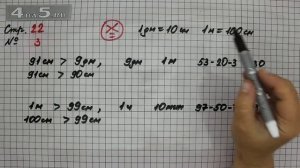 4на5.ru
Стр. 22
№ 3
1дм = 10см 1м = 100см
91см > 9дм, 9дм 1м 53-20-3
91см > 90см
1м > 99см, 1ч 10мин 97-50-7
100см > 99см